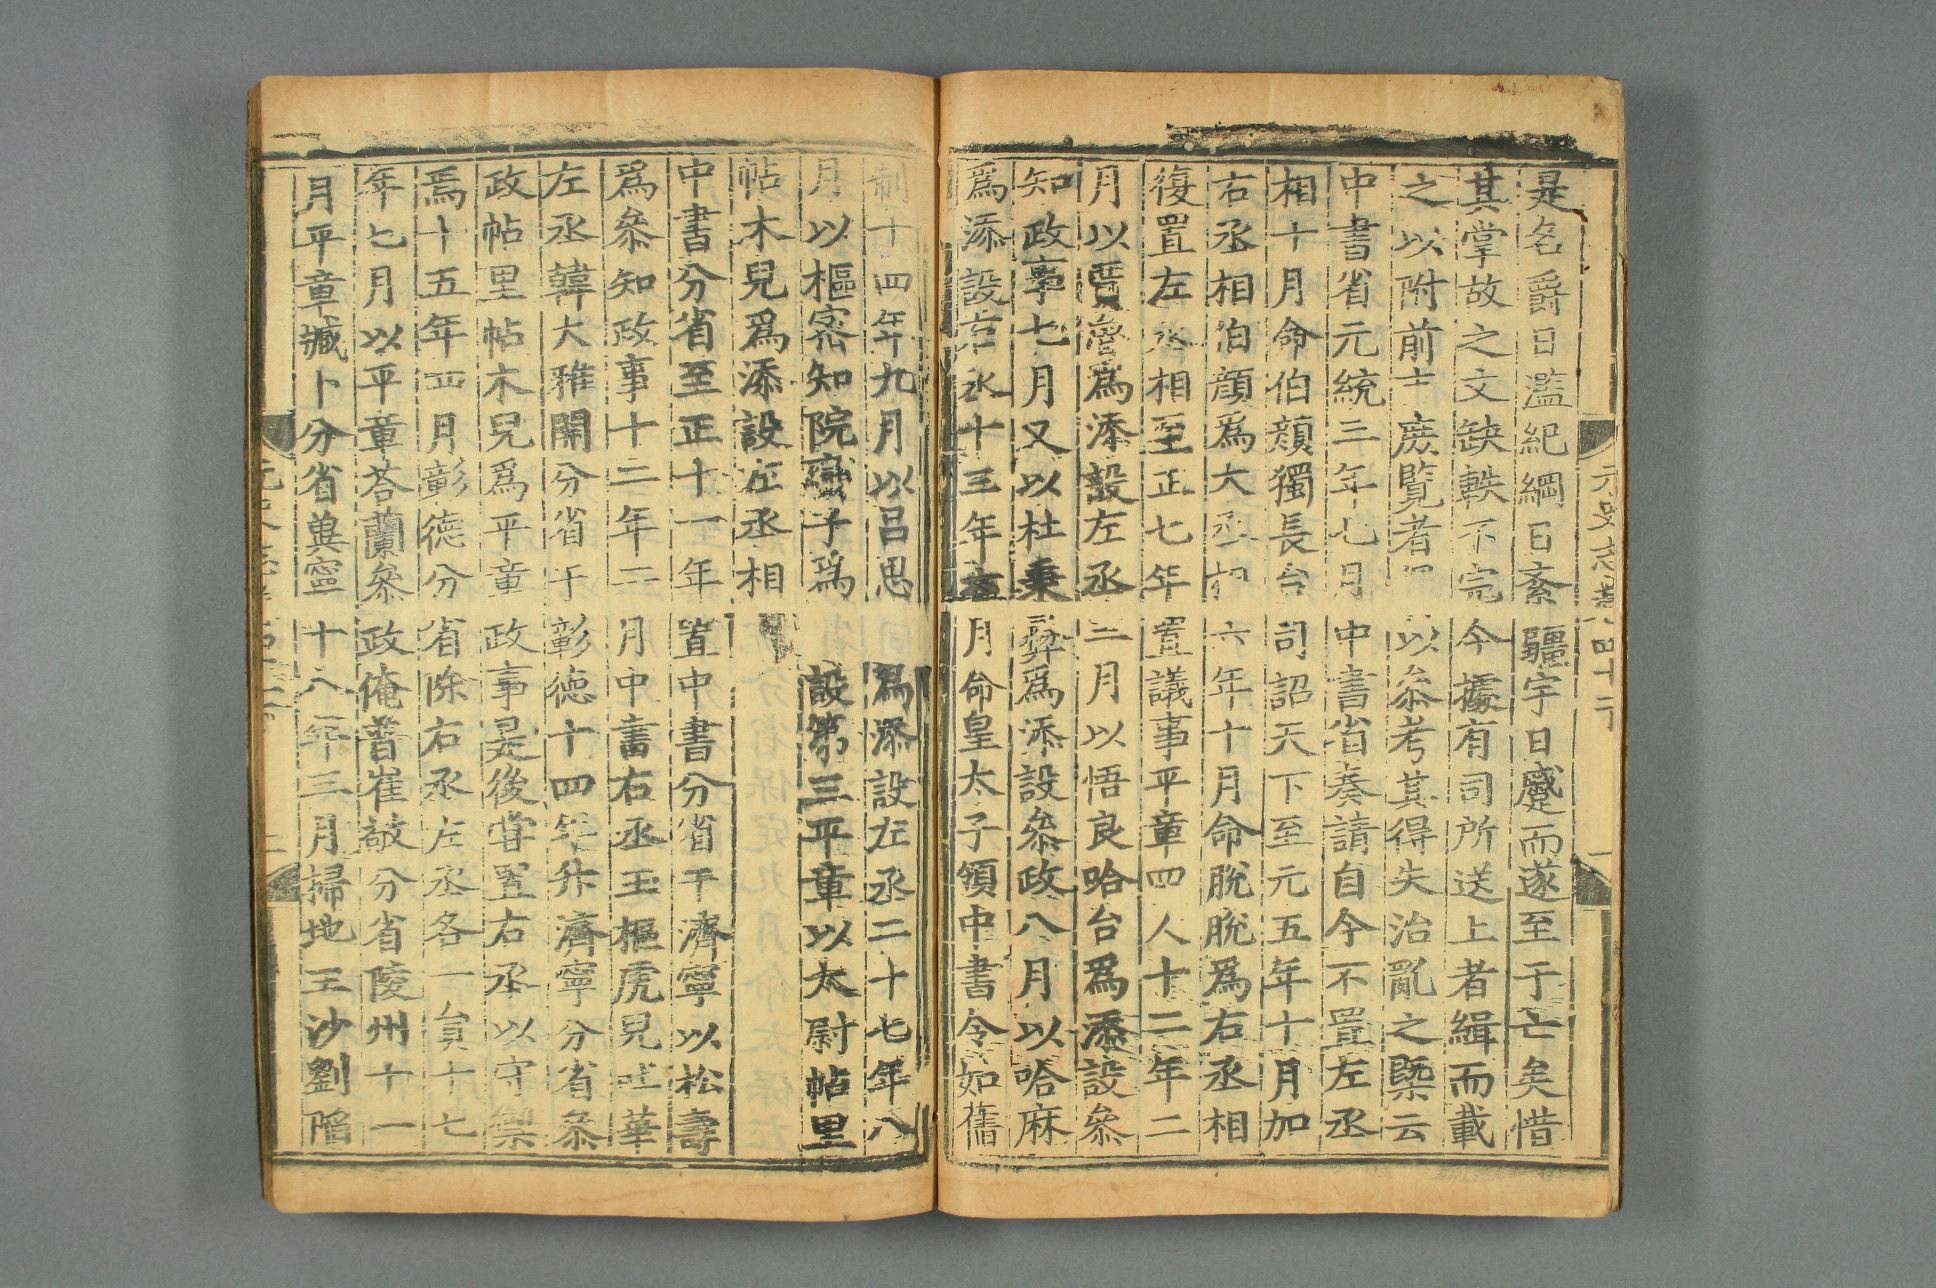 是名爵日濫紀綱日紊疆宇日蹙而遂至于亡矣惜
其掌故之文缺軼不完今據有司所送上者緝而載
之以附前 庶覽者 以叅考其得失治亂之槩云
中書省元統三年七月中書省奏請自今不置左丞
相十月命伯顔獨長台司詔天下至元五年十月加
右丞相伯顔爲大丞相六年十月命脫脫爲右丞相
復置左丞相至正七年置議事平章四人十二年二
月以賈魯爲添設左丞三月以悟良哈台爲添設叅
知政事七月又以杜秉彝爲添設叅政八月以哈麻
爲添設右丞十三年六月命皇太子領中書令如舊
制十四年九月以呂思 爲添設左丞二十七年八
月以樞密知院蠻子爲 設第三平章以太尉帖里
帖木兒爲添設左丞相
中書分省至正十一年置中書分省于濟寧以松壽
爲叅知政事十二年二月中書右丞玉樞虎兒吐華
左丞韓大雅開分省于彰德十四年升濟寧分省叅
政帖里帖木兒爲平章政事是後嘗置右丞以守禦
焉十五年四月彰德分省除右丞左丞各一員十七
年七月以平章荅蘭叅政俺普崔敬分省陵州十一
月平章臧卜分省冀寧十八年三月掃地王沙劉陷
元史志卷四十二